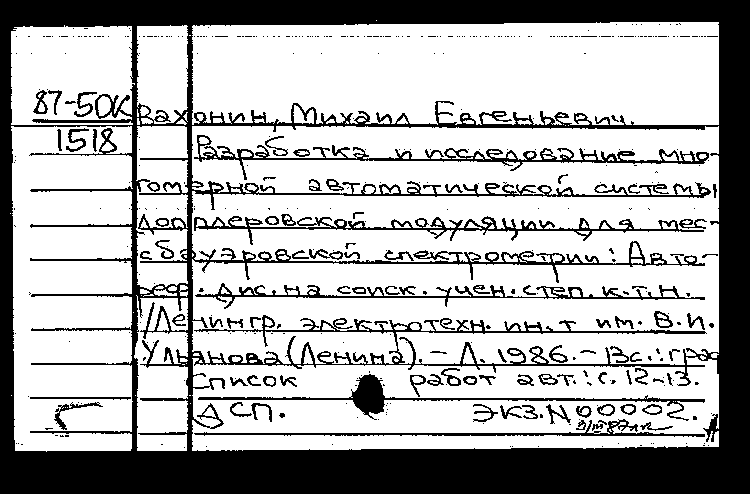 87-5ДК
1518
Вахонин, Михаил Евгеньевич.
Разработка и исследование мно-
гомерной автоматической системы
допплеровской модуляции для мес-
сбауэровской спектрометрии: Авто-
реф. дис. на соиск. учен. степ. к.т.н.
//Ленингр. электротехн. ин. т им. В.И.
Ульянова (Ленина). - Л., 1986. - 13с.: граф
Список работ авт.: с. 12-13.
ДСП. ЭКЗ.N 00002.